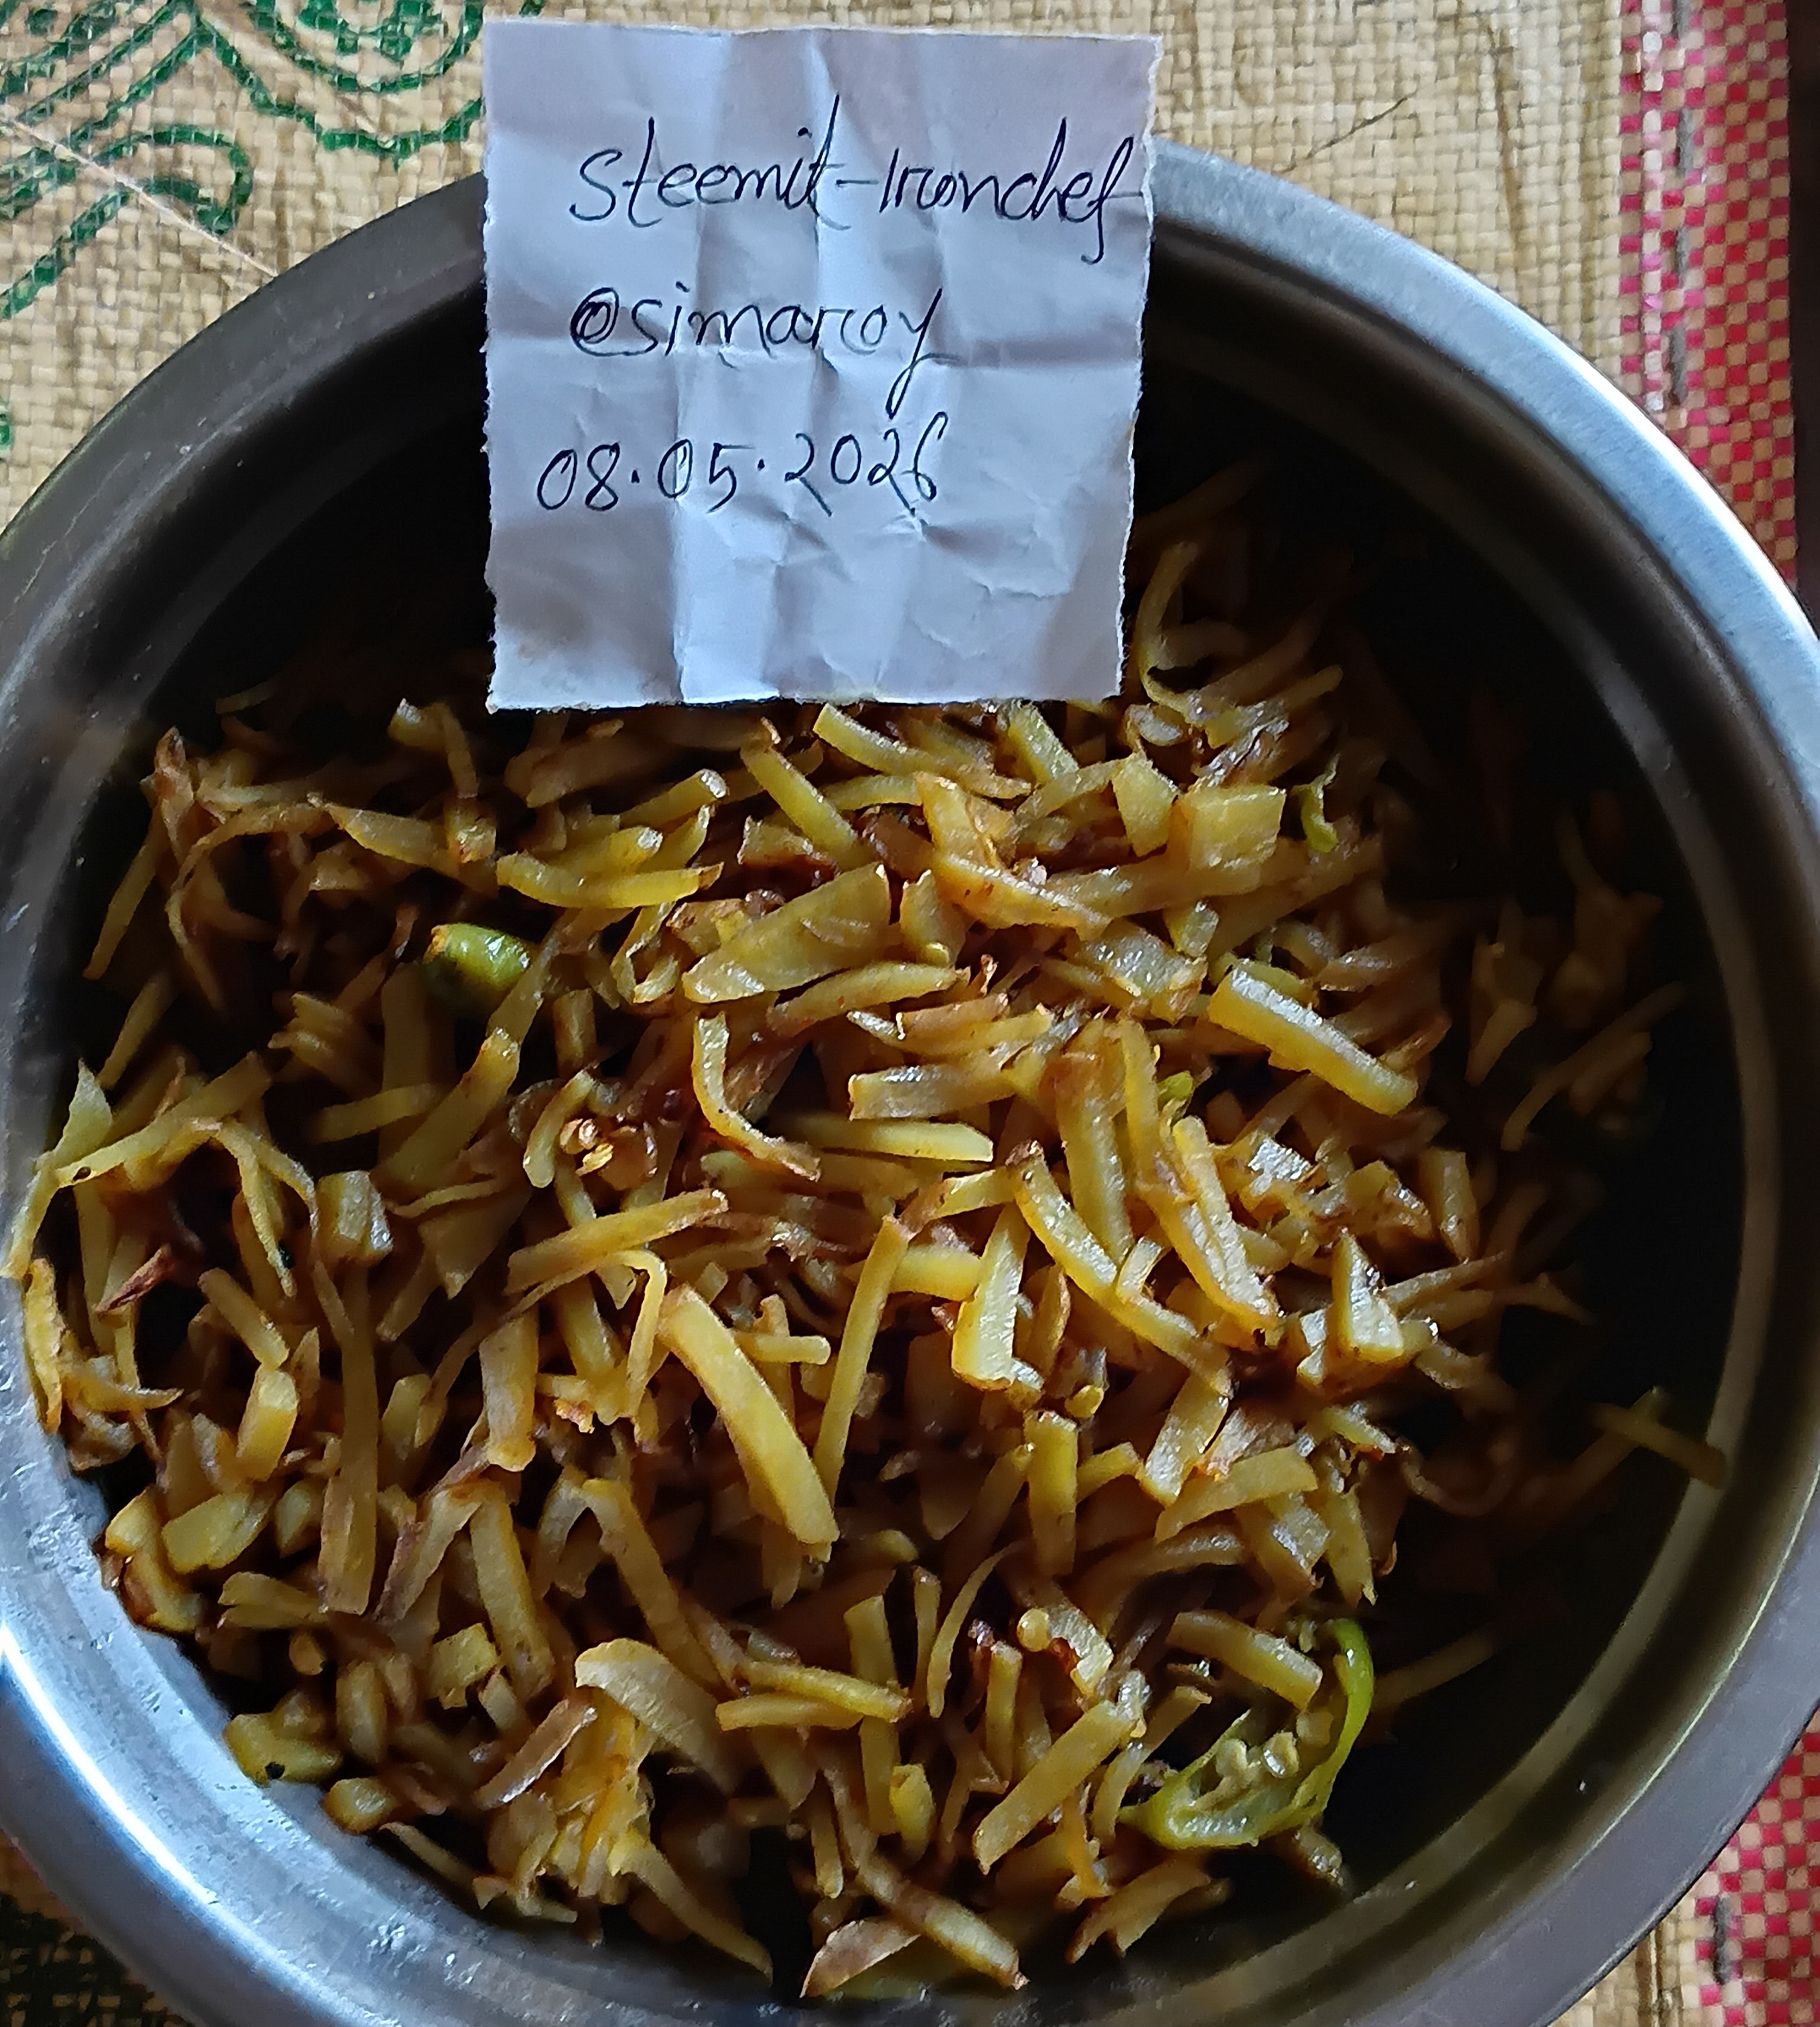 Steemit-Ironchef
@simaroy
08.05.2026